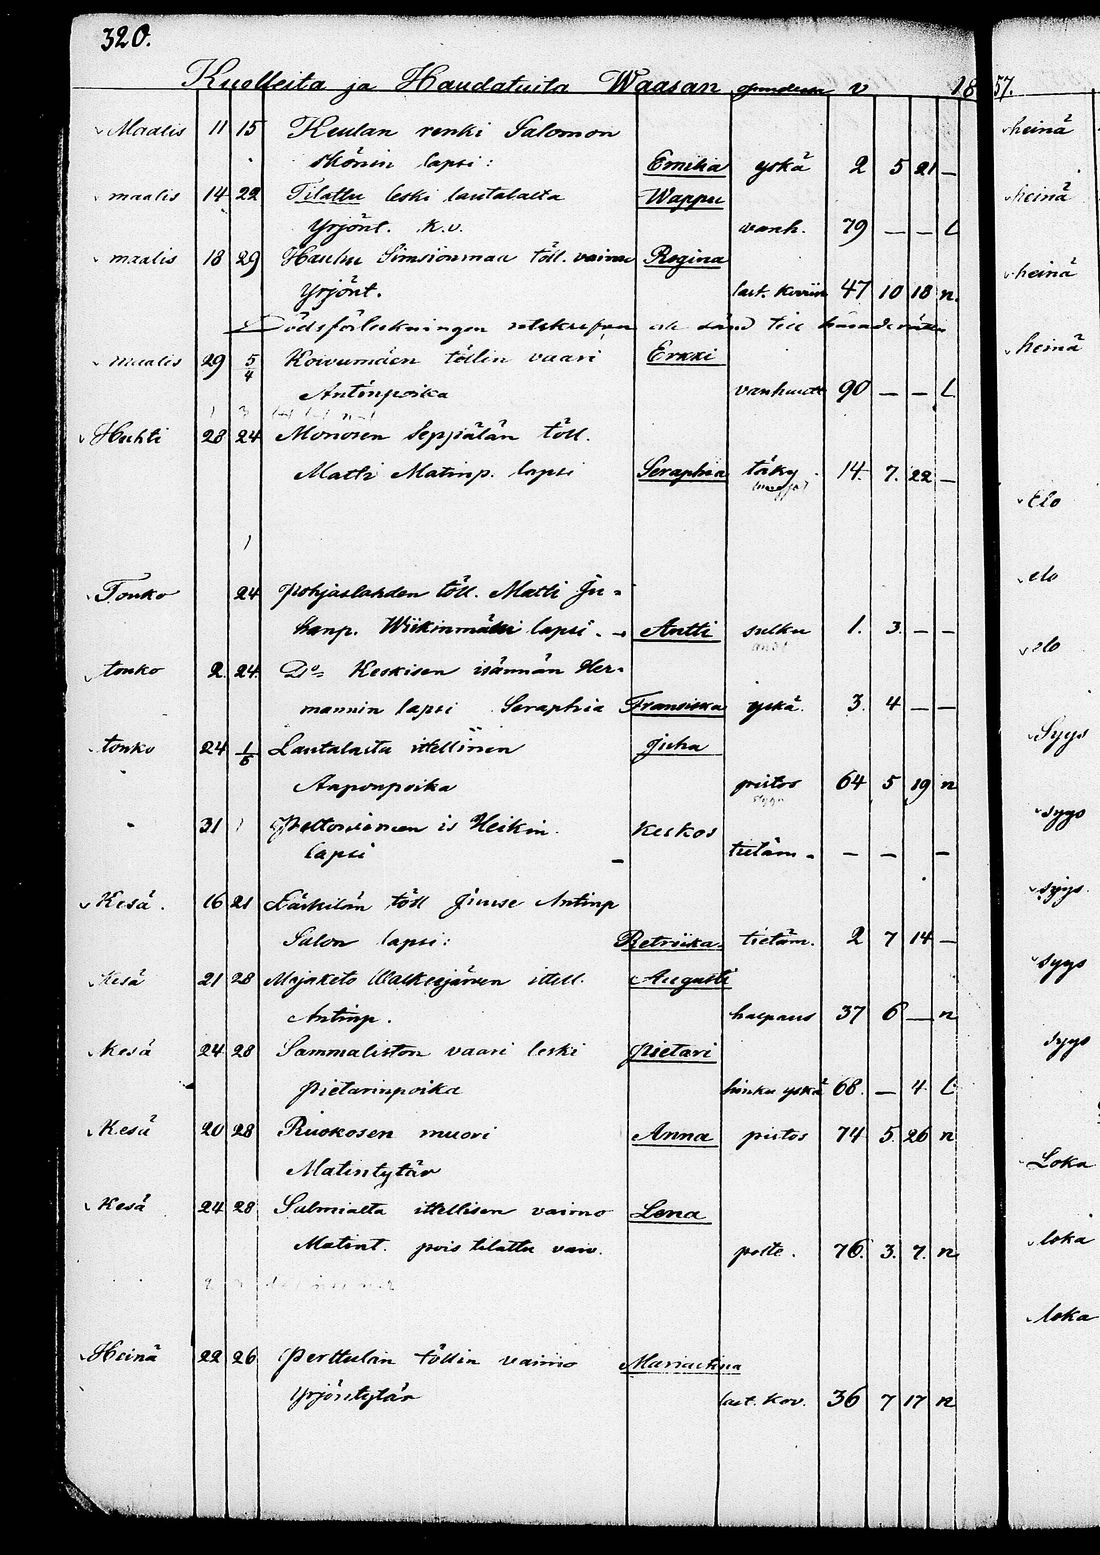 320.
Kuolleita ja Haudatuita Waasan v 1857.
Maalis 11 15 Keulan renki Salomon
Skönin lapsi: Emilia yskä 2 5 21 —
maalis 14 22 Tilattu leski lautalalta Wappu
Yrjönt. K.v. vanh. 79 — — L
maalis 18 29 Hauhu Simsiönmaa töll. vaimo Regina
Yrjönt. last. 47 10 18 n.
till häradsrätten
maalis 29 5/4 Koivumäen töllin vaari Erkki
Antinpoika vanhuutt 90 — — L
Huhti 28 24 Monosen Seppälän töll.
Matti Matinp. lapsi Seraphia täky 14. 7. 22 —
Touko 24 Pohjaslahden töll. Matti Ju-
hanp. Wiikinmäki lapsi Antti sulku 1. 3. — —
touko 2 24 Do Keskisen isännän Her-
mannin lapsi Seraphia Fransiska yskä 3. 4 — —
touko 24 1/6 Lautalalta ittellinen Juha
Aaponpoika pistos 64 5 19 n
31 Peltoniemen is Heikin Keskos
lapsi — tietäm. — — —
Kesä. 16 21 Kärkilän töll Juuse Antinp
Salon lapsi: Retriika tietäm. 2 7 14 —
Kesä 21 28 Majaketo Walkeajärven ittell. Augusti
Antinp. halpaus 37 6 — n
Kesä 24 28 Sammaliston vaari leski Pietari
Pietarinpoika hinku yskä 68. — 4. L
Kesä 20 28 Ruokosen muori Anna pistos 74 5 26 n
Matintytär
Kesä 24 28 Salmialta ittellisen vaimo Lena
Matint. pois tilattu vaiv. polte. 76. 3. 7. n
Heinä 22 26 Perttulan töllin vaimo Mariastina
Yrjöntytär last. kov. 36 7 17 n
heinä
heinä
heinä
heinä
Elo
elo
elo
Syys
syys
syys.
syys
syys
Loka
loka
loka